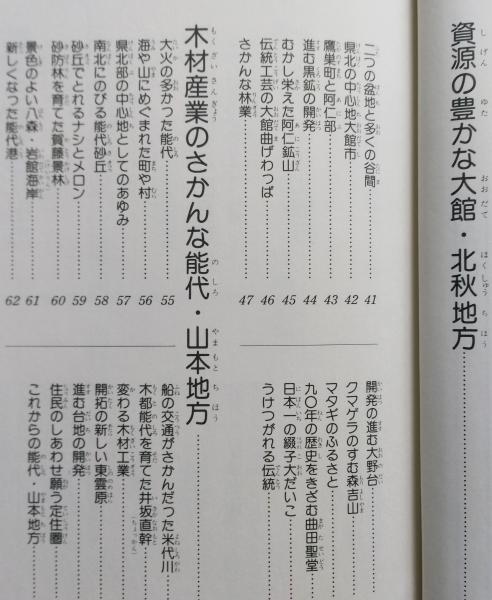 資源の豊かな大館・北秋地方
二つの盆地と多くの谷間 41
県北の中心地大館市 42
鷹巣町と阿仁部 43
進む黒鉱の開発 44
むかし栄えた阿仁鉱山 45
伝統工芸の大館曲げわっぱ 46
さかんな林業 47
開発の進む大野台
クマゲラのすむ森吉山
マタギのふるさと
九〇年の歴史をきざむ曲田聖堂
日本一の綴子大だいこ
うけつがれる伝統
木材産業のさかんな能代・山本地方
大火の多かった能代 55
海や山にめぐまれた町や村 56
県北部の中心地としてのあゆみ 57
南北にのびる能代砂丘 58
砂丘でとれるナシとメロン 59
砂防林を育てた賀藤景林 60
景色のよい八森・岩館海岸 61
新しくなった能代港 62
船の交通がさかんだった米代川
木都能代を育てた井坂直幹(ちょっかん)
変わる木材工業
開拓の新しい東雲原
進む台地の開発
住民のしあわせ願う定住圏
これからの能代・山本地方